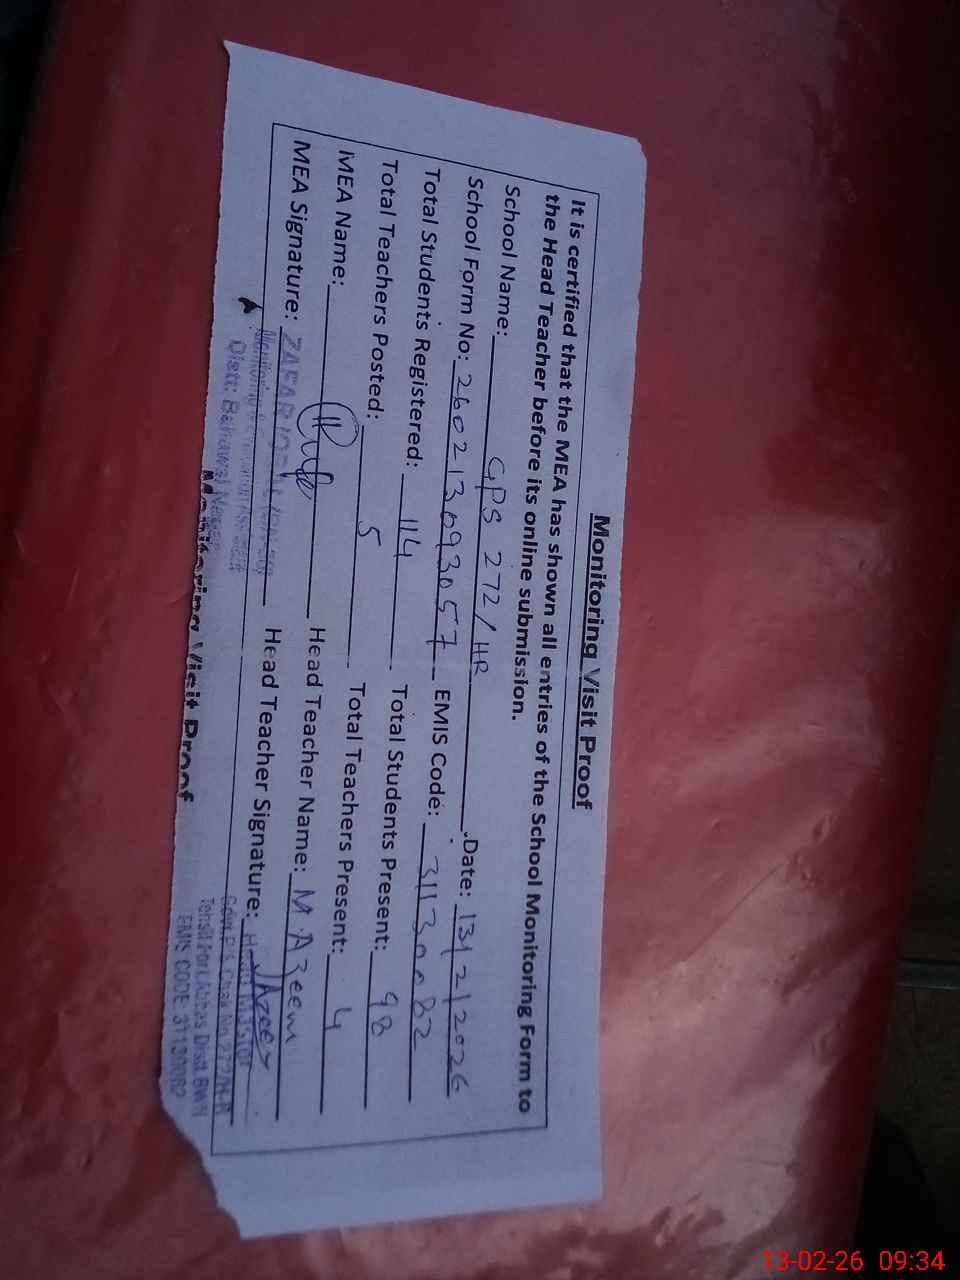 Monitoring Visit Proof
It is certified that the MEA has shown all entries of the School Monitoring Form to
the Head Teacher before its online submission.
School Name: GPS 272/HR .Date: 13/2/2026
School Form No: 260213093057 EMIS Code: 31130082
Total Students Registered: 114 Total Students Present: 98
Total Teachers Posted: 5 Total Teachers Present: 4
MEA Name: Head Teacher Name: M.Azeem
MEA Signature: ZAFAR Head Teacher Signature: MAzeem
Head Master
Monitoring
Distt: Bahawal Nagar
Govt. P/S Chak No. 272/H.R
Tehsil Fort Abbas Distt. BWN
EMIS CODE: 31130082
Monitoring Visit Proof
13-02-26 09:34